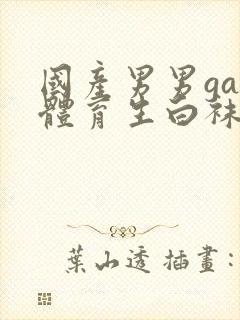 國產男男ga
體育生白袜
葉山透 插畫: